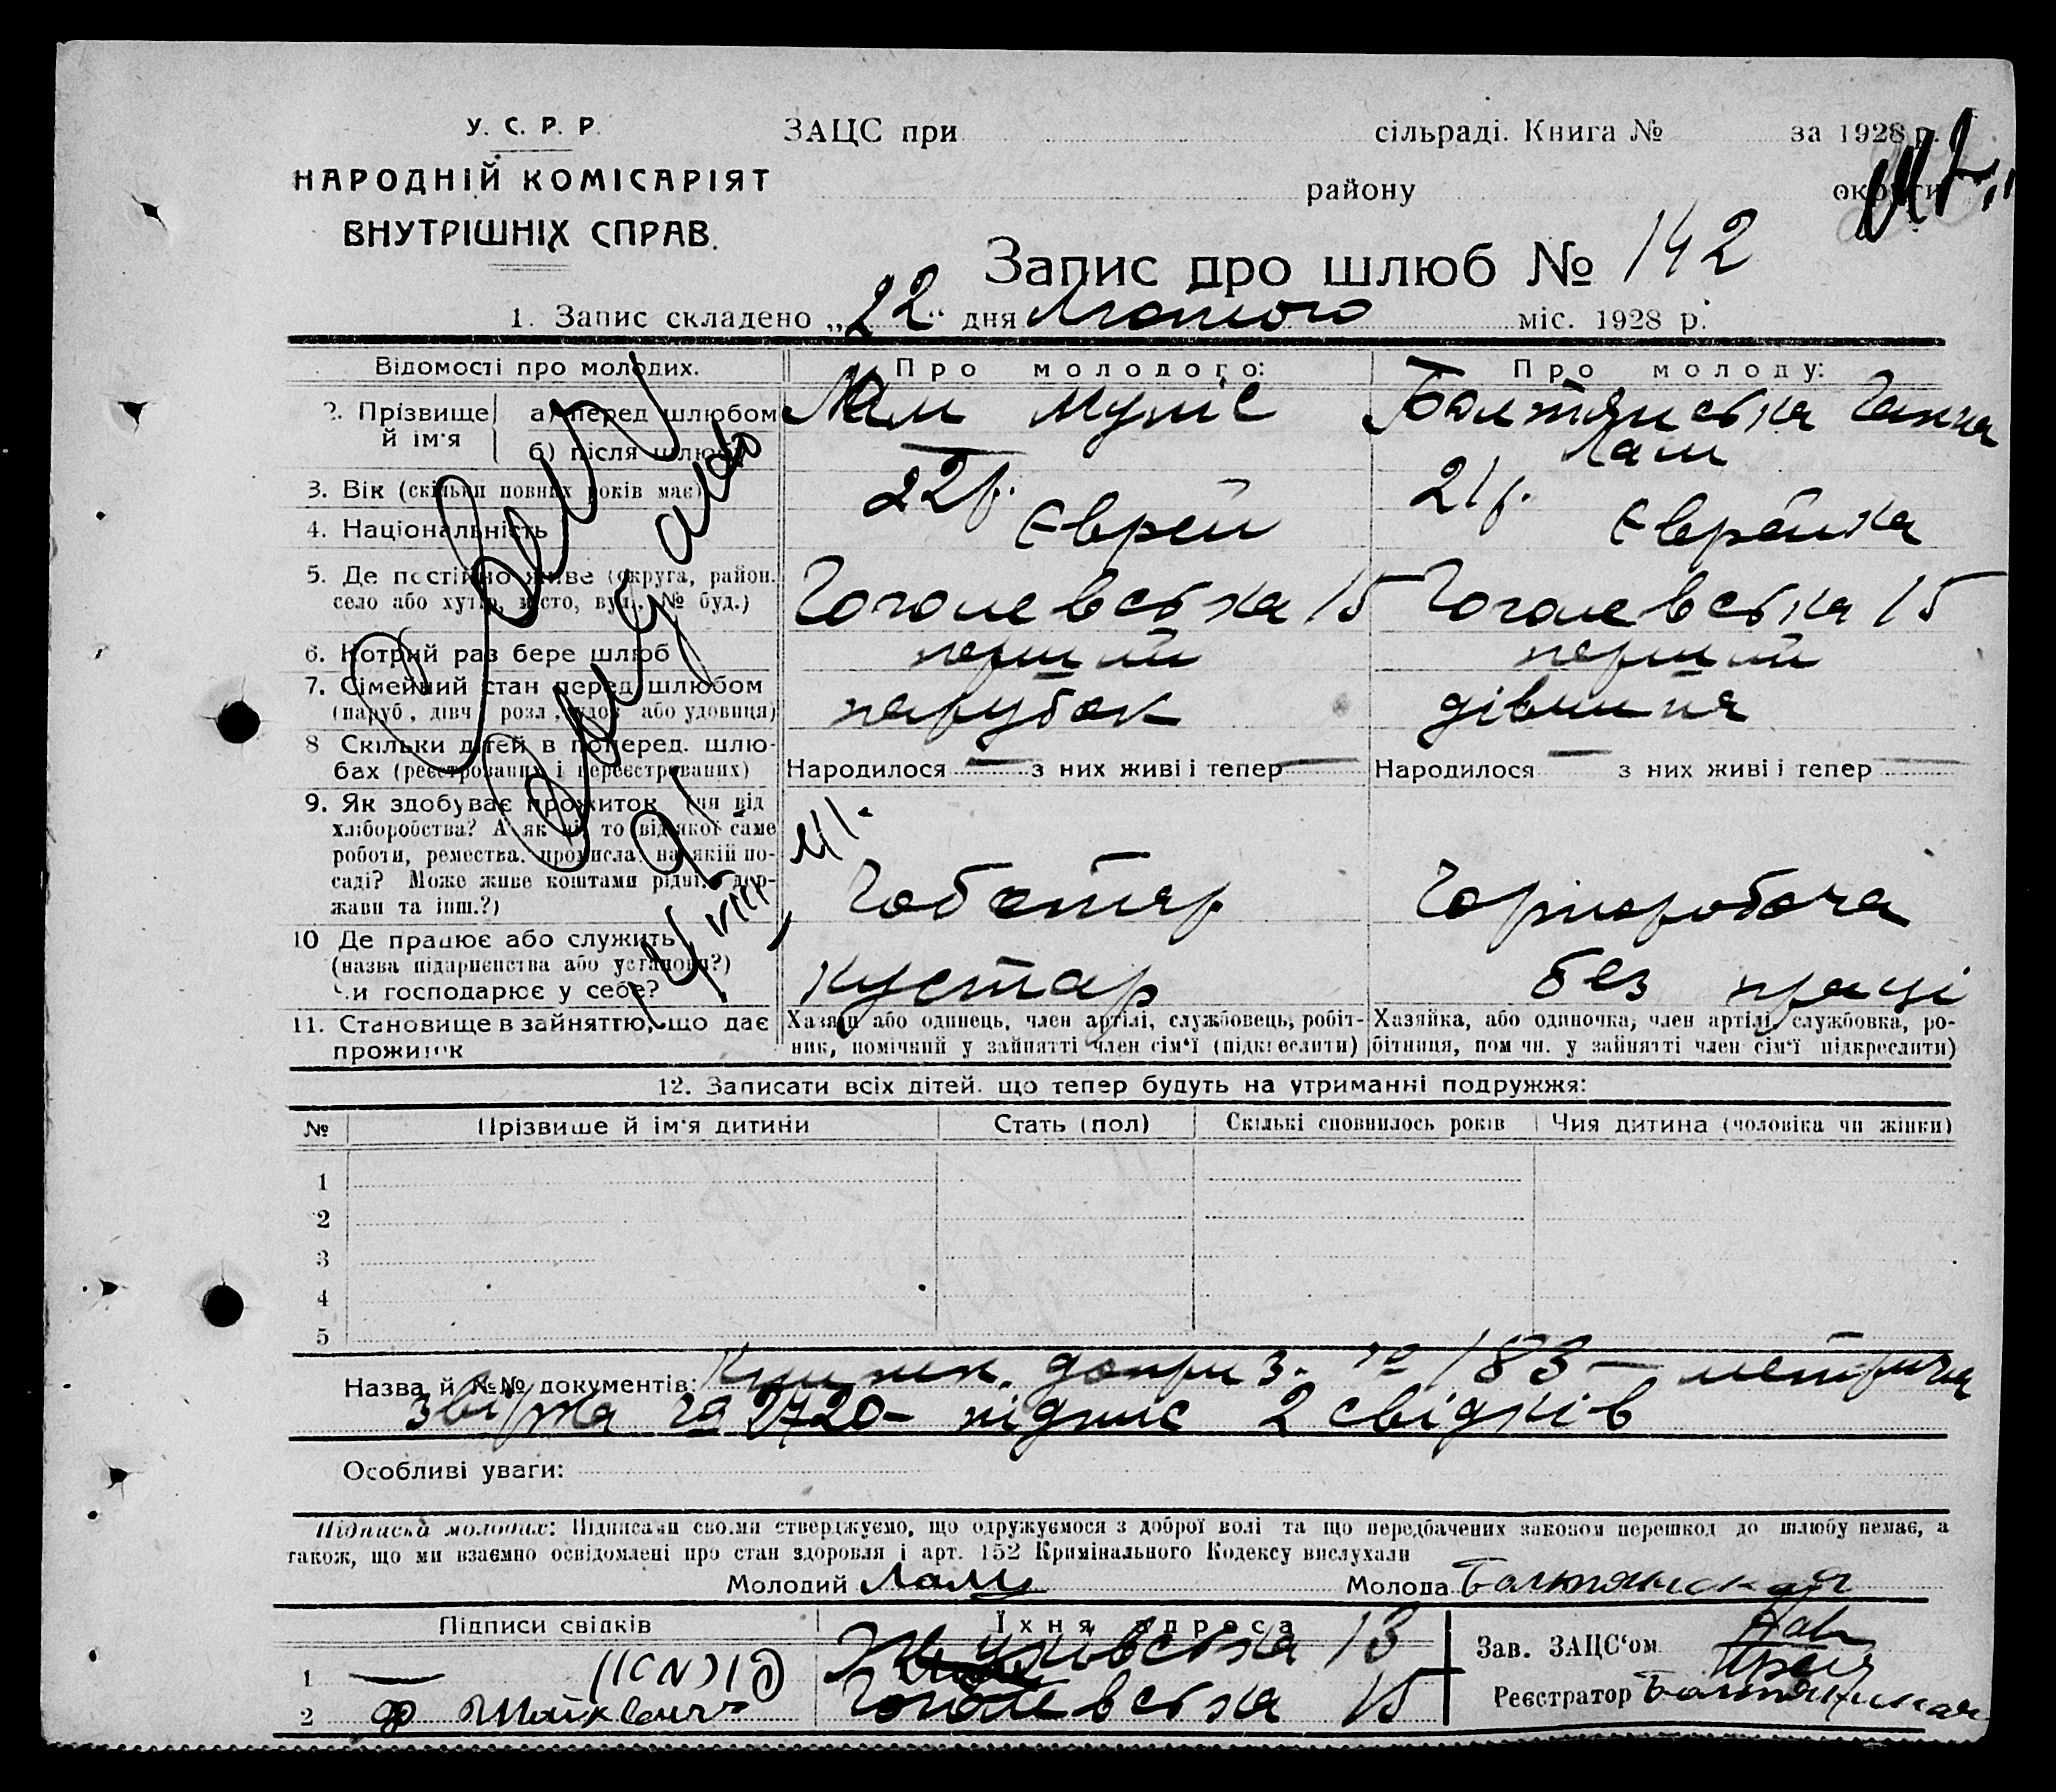 У. С. Р. Р.
НАРОДНІЙ КОМІСАРІЯТ
ВНУТРІШНІХ СПРАВ.
ЗАЦС при сільраді. Книга № за 1928 р.
району округи
Запис про шлюб № 142
1. Запис складено „22“ дня Лютого міс. 1928 р.
Відомості про молодих. Про молодого: Про молоду:
2. Прізвище й ім'я а) перед шлюбом Лам Муніс Балтянська Ганна
б) після шлюбу — Лам
3. Вік (скільки повних років має) 22 р. 21 р.
4. Національність Єврей Єврейка
5. Де постійно живе (округа, район, село або хутір, місто, вул., № буд.) Гоголевська 15 Гоголевська 15
6. Котрий раз бере шлюб перший перший
7. Сімейний стан перед шлюбом (паруб., дівч., розл., удов. або удовиця) парубок дівчина
8 Скільки дітей в поперед. шлюбах (реєстрованих і нереєстрованих) Народилося — з них живі і тепер — Народилося — з них живі і тепер —
9. Як здобуває прожиток (чи від хліборобства? А як ні, то від якої саме роботи, ремества, промисла, на якій посаді? Може живе коштами рідні, держави та інш.?) Чоботяр Чорноробоча
10 Де працює або служить (назва підприємства або установи?) Чи господарює у себе? кустар без праці
11. Становище в зайняттю, що дає прожиток
Хазяїн або одинець, член артілі, службовець, робітник, помічний у зайнятті член сім'ї (підкреслити)
Хазяйка, або одиночка, член артілі, службовка, робітниця, помічн. у зайнятті член сім'ї підкреслити)
12. Записати всіх дітей, що тепер будуть на утриманні подружжя:
№ Прізвище й ім'я дитини Стать (пол) Скількі сповнилось років Чия дитина (чоловіка чи жінки)
1
2
3
4
5
Назва й №№ документів: Книжк. доприз. № 183 — метрична
звірка № 2720 — підпис 2 свідків
Особливі уваги:
Підписка молодих: Підписами своїми стверджуємо, що одружуємося з доброї волі та що передбачених законом перешкод до шлюбу немає, а
також, що ми взаємно освідомлені про стан здоровля і арт. 152 Кримінального Кодексу вислухали
Молодий Лам Молода Балтянская
Підписи свідків Їхня адреса
1 13
2 Гоголевська 15
Зав. ЗАЦС'ом
Реєстратор